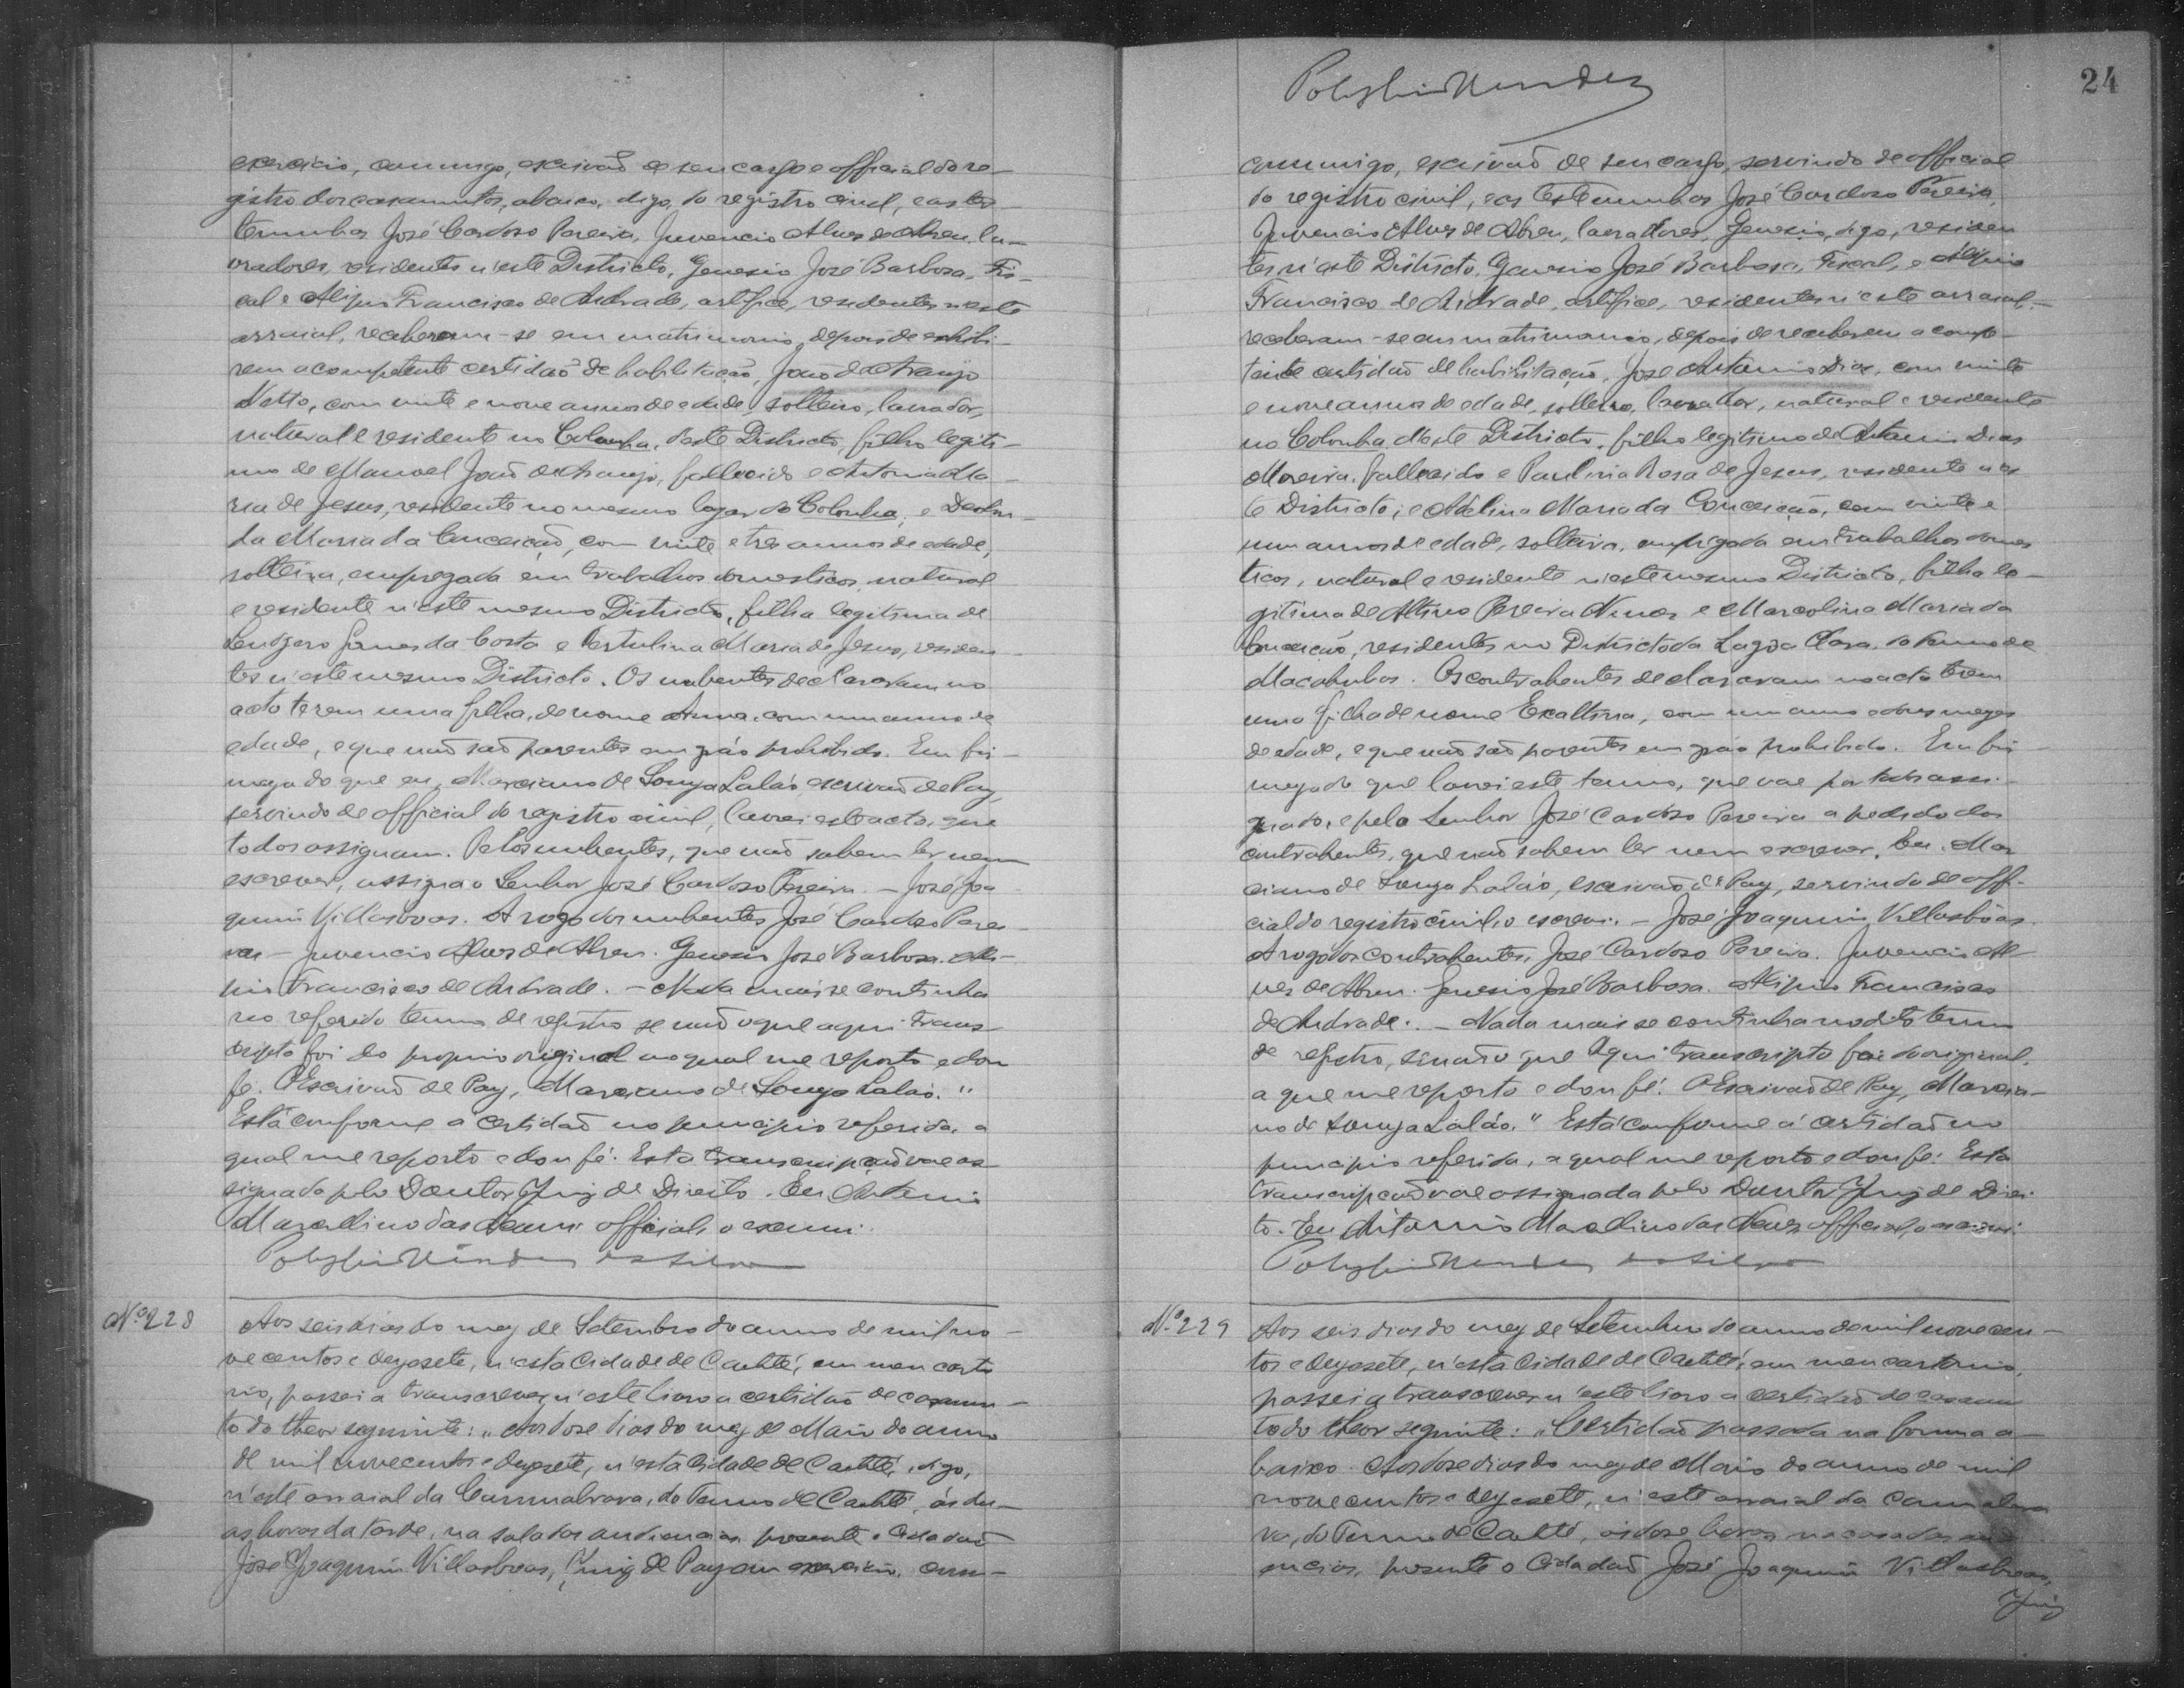 exercicio, commigo, escrivaõ de seu cargo e official do re-
gistro dos casamentos, abaixo, digo, do registro civil, e as tes-
temunhas José Cardoso Pereira, Juvencio Alves de Abreu, la-
vradores, residentes n'este Districto, Genesio José Barbosa, Fis-
cal e Alipio Francisco de Andrade, artifice, residentes n'este
arraial, receberam-se em matrimonio, depois de exhibi-
rem a competente certidaõ de habilitaçaõ, Joaõ de Araujo
Netto, com vinte e nove annos de edade, solteiro, lavrador,
natural e residente no Colonha, d'este Districto, filho legiti-
mo de Manoel Joaõ de Araujo, fallecido e Antonia Ma-
ria de Jesus, residente no mesmo logar do Colonha; e
da Maria da Conceiçaõ, com vinte e tres annos de edade,
solteira, empregada em trabalhos domesticos, natural
e residente n'este mesmo Districto, filha legitima de
da Costa e Maria de Jesus, residen-
tes n'este mesmo Districto. Os nubentes declararam no
acto terem uma filha, de nome Anna, com um anno de
edade, e que naõ saõ parentes em gráo prohibido. Em fir-
meza do que eu, Marciano de Souza Laláo, escrivaõ de Paz,
servindo de official do registro civil, lavrei este acto, que
todos assignam. Pelos nubentes, que naõ sabem ler nem
escrever, assigna o Senhor José Cardoso Pereira. - José Joa-
quim Villasboas. A rogo dos nubentes José Cardoso Perei-
ra - Juvencio Alves de Abreu. Genesio José Barbosa. Ali-
pio Francisco de Andrade. - Nada mais se continha
no referido termo de registro se naõ o que aqui trans-
cripto foi do proprio original ao qual me reporto e dou
fé. O Escrivaõ de Paz, Marciano de Souza Laláo."
Está conforme a certidaõ no principio referida, a
qual me reporto e dou fé. Esta transcripçaõ vae as-
signada pelo Doutor Juiz de Direito. Eu Antonio
Marcellino das Neves official, o escrevi.
Mendes da Silva
Nº 228
Aos seis dias do mez de Setembro do anno de mil no-
vecentos e dezesete, n'esta Cidade de Caetité, em meu carto-
rio, passei a transcrever n'este livro a certidaõ de casamen-
to do theor seguinte: "Aos dose dias do mez de Maio do anno
de mil novecentos e dezesete, n'esta Cidade de Caetité, digo,
n'este arraial da Cannabrava, do Termo de Caetité, ás du-
as horas da tarde, na sala das audiencias, presente o Cidadaõ
José Joaquim Villasboas, Juiz de Paz em exercicio, com-
Mendes
24
commigo, escrivaõ de seu cargo, servindo de official
do registro civil, e as testemunhas José Cardoso Pereira,
Juvencio Alves de Abreu, lavradores, Genesio, digo, residen
tes n'este Districto, Genesio José Barbosa, Fiscal, e Alipio
Francisco de Andrade, artifice, residentes n'este arraial,-
receberam-se em matrimonio, depois de receberem a compe-
tente certidaõ de habilitaçaõ, José Antonio Dias, com vinte
e nove annos de edade, solteiro, lavrador, natural e residente
no Colonha d'este Districto, filho legitimo de Antonio Dias
Moreira, fallecido e Paulina Rosa de Jesus, residente n'es
te Districto; e Adelina Maria da Conceiçaõ, com vinte e
um annos de edade, solteira, empregada em trabalhos domes
ticos, natural e residente n'este mesmo Districto, filha le-
gitima de Altino Pereira Nunes e Marcolina Maria da
Conceiçaõ, residentes no Districto da Lagôa Clara, do termo de
Macahubas. Os contrahentes declararam no acto terem
uma filha de nome Exaltina, com um anno e dous mezes
de edade, e que naõ saõ parentes em gráo prohibido. Em fir-
meza do que lavrei este termo, que vae por todos assi-
gnado, e pelo Senhor José Cardoso Pereira a pedido dos
contrahentes, que naõ sabem ler nem escrever. Eu, Mar
ciano de Souza Laláo, escrivaõ de Paz, servindo de offi-
cial do registro civil, o escrevi. - José Joaquim Villasbôas.
A rogo dos contrahentes, José Cardoso Pereira. Juvencio Al-
ves de Abreu. Genesio José Barbosa. Alipio Francisco
de Andrade. - Nada mais se continha no dito termo
de registro, senaõ o que aqui transcripto foi do original,
a que me reporto e dou fé. O Escrivaõ de Paz, Marcia-
no de Souza Laláo." Está conforme á certidaõ no
principio referida, a qual me reporto e dou fé. Esta
transcripçaõ vae assignada pelo Doutor Juiz de Direi-
to. Eu Antonio Marcellino das Neves official, o escrevi.
Mendes da Silva
Nº 229
Aos seis dias do mez de Setembro do anno de mil novecen-
tos e dezesete, n'esta Cidade de Caetité, em meu cartorio,
passei a transcrever n'este livro a certidaõ de casamen
to do theor seguinte: "Certidaõ passada na forma a-
baixo. Aos dose dias do mez de Maio do anno de mil
novecentos e dezesete, n'este arraial da Cannabra
va, do Termo de Caetité, ás dose horas na casa das au
encias, presente o Cidadaõ José Joaquim Villasboas,
Juiz